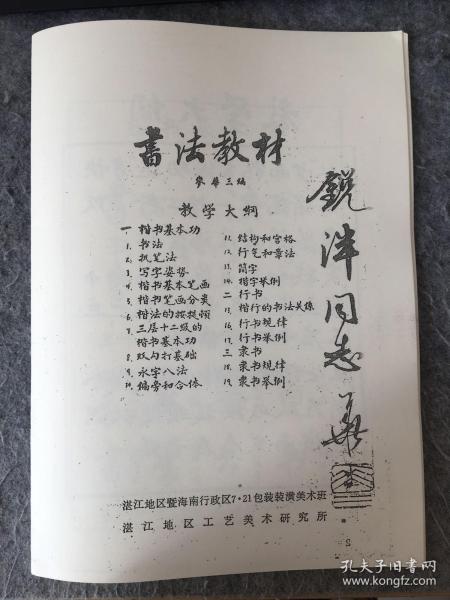 書法教材
麥華三編
教学大綱
一 楷书基本功
1. 书法
2. 执笔法
3. 写字姿勢
4. 楷书基本笔画
5. 楷书笔画分类
6. 楷法的按提顿
7. 三层十二级的
楷书基本功
8. 双勾打基础
9. 永字八法
10. 偏旁和合体
11. 结构和宫格
12. 行气和章法
13. 简字
14. 楷字举例
二 行书
15. 楷行的书法关係
16. 行书規律
17. 行书举例
三 隶书
18. 隶书規律
19. 隶书举例
锐泮同志
湛江地区暨海南行政区7·21包装装潢美术班
湛江地区工艺美术研究所
孔夫子旧书网
www.kongfz.com